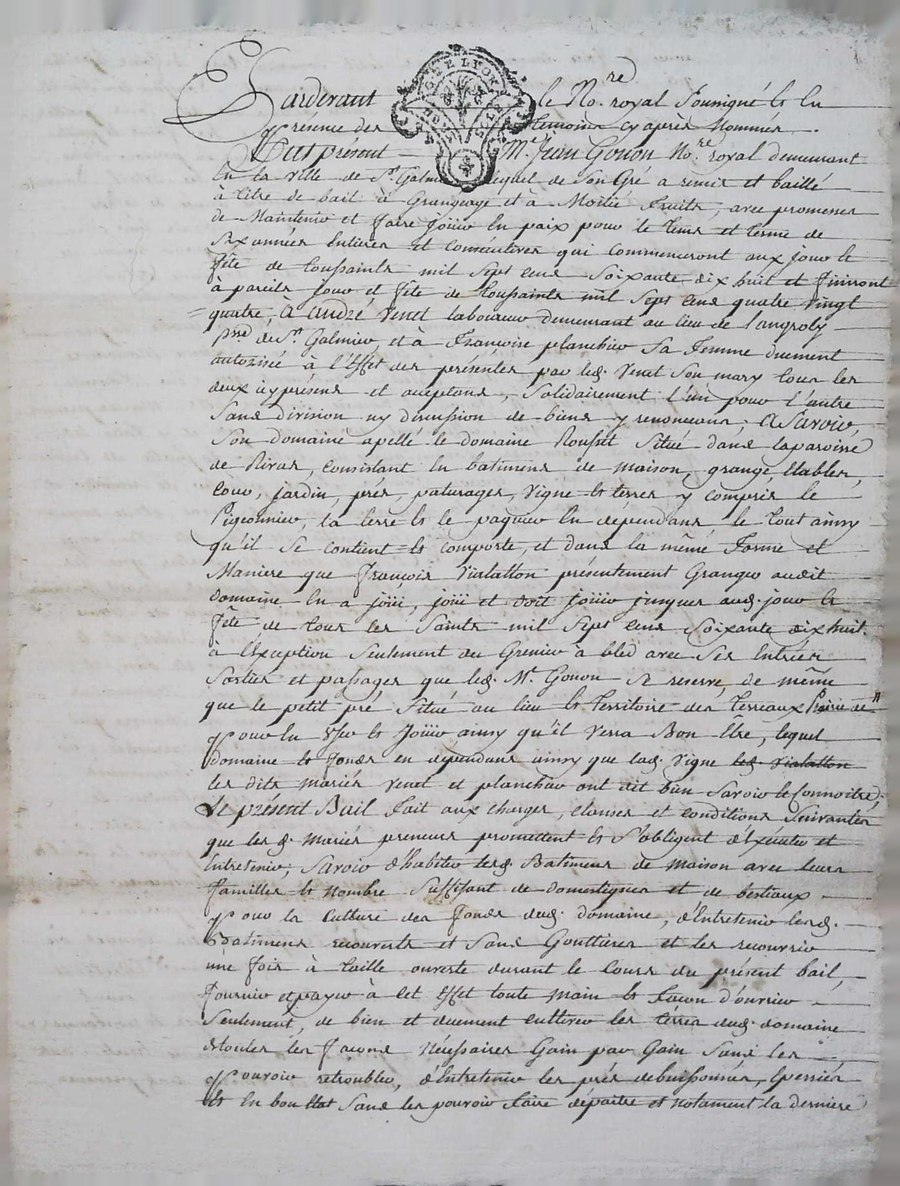 Pardevant le No.re royal Soussigné et en
présence des temoins cy après Nommés
Fut présent M.e Jean Gonon No.re royal demeurant
En la ville de S.t Galmier lequel de Son Gré a remis et baillé
à titre de bail à Grangeage et à Moitié fruits, avec promesse
de Maintenir et faire jouir en paix pour le tems et terme de
Six années Entieres et consecutives qui commenceront aux jour et
fête de toussaints mil Sept cens Soixante dix huit et finiront
a pareils jour et fête de toussaints mil Sept cens quatre vingt
quatre, à andré Venet laboureur demeurant au lieu de
p.sse de S.t Galmier, et à Françoise planchier Sa Femme duement
autorisée à l'Effet des présentes par led. Venet Son mary tous les
deux icy présens et acceptans, Solidairement l'un pour l'autre
Sans division ny discussion de biens y renoncans, A Savoir,
Son domaine apellé le domaine Rousset Situé dans la paroisse
de Rivas, consistant En batimens de maison, grange, Etables,
cour, jardin, prés, paturages, vigne et terres y compris le
Pigeonnier, la terre et le paquier En dépendans le tout ainsy
qu'il Se contient et comporte, et dans la même Forme et
Maniere que françois Vialatton présentement Granger audit
domaine En a joüi, joüi et doit joüir jusques aud. jour et
fête de tous les Saints mil Sept cens Soixante dix huit.
à l'Exception Seulement du Grenier à bled avec Ses Entrées
Sorties et passages que led. M.e Gonon Se reserve, de même
que le petit pré Situé au lieu et territoire des terreaux de
pour En User et Joüir ainsy qu'il Verra Bon Etre, lequel
domaine et fonds en dependans ainsy que lad. vigne led. Vialatton
les dits mariés Venet et planchier ont dit bien Savoir et Connoitre,
Le présent Bail fait aux charges, clauses et conditions Suivantes
que les d. mariés preneurs promettent et S'obligent d'Exécuter et
Entretenir, Savoir d'habiter lesd. Batimens de maison avec leurs
familles et Nombre Suffisant de domestiques et de bestiaux
pour la Culture des fonds dud. domaine, d'Entretenir lesd.
Batimens recouverts et Sans Gouttieres et les recouvrir
une fois à taille ouverte durant le Cours du présent bail,
Fournir et payer à Cet Effet toute main et façon d'ouvrier
Seulement, de bien et duement cultiver les terres dud. domaine
de toutes les façons Nécessaires Gain par Gain Sans les
pouvoir retroubler, d'Entretenir les prés debuissonnés,
et En bon Etat Sans les pouvoir faire dépaitre et notament la derniere